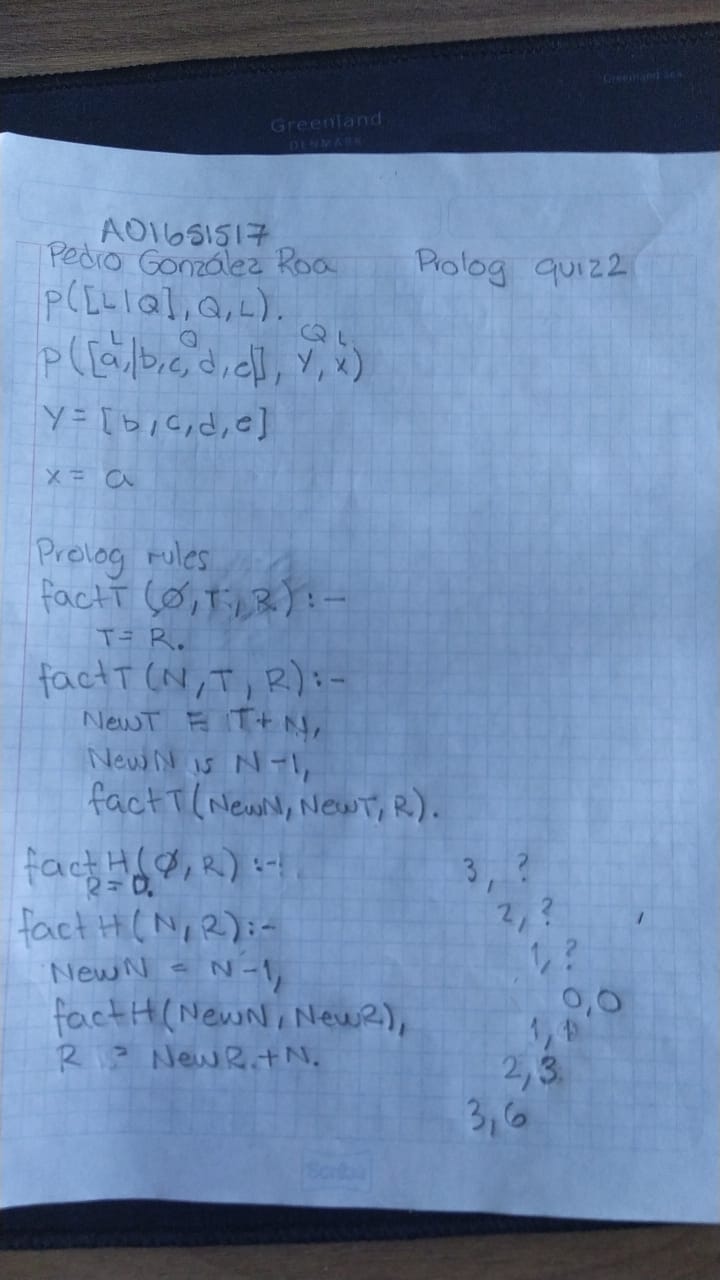 Greenland
DENMARK
A01651517
Pedro González Roa Prolog quiz2
P([L|Q],Q,L).
L Q Q L
P([a,|b,c,d,e]], Y,x)
Y = [b,c,d,e]
x = a
Prolog rules
factT (Ø,T,R):-
T= R.
factT(N,T,R):-
NewT = T+N,
NewN is N-1,
factT(NewN,NewT,R).
factH(Ø,R):- 3, ?
R=0.
factH(N,R):- 2,?
NewN = N-1, 1,?
factH(NewN,NewR), 0,0
1,1
R = NewR+N. 2,3
3,6
Scribe